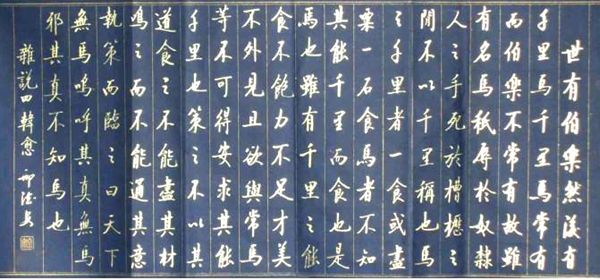 世有伯樂然後有
千里馬千里馬常有
而伯樂不常有故雖
有名馬祇辱於奴隸
人之手死於槽櫪之
間不以千里稱也馬
之千里者一食或盡
粟一石食馬者不知
其能千里而食也是
馬也雖有千里之能
食不飽力不足才美
不外見且欲與常馬
等不可得安求其能
千里也策之不以其
道食之不能盡其材
鳴之而不能通其意
執策而臨之曰天下
無馬嗚呼其真無馬
邪其真不知馬也
雜說四韓愈